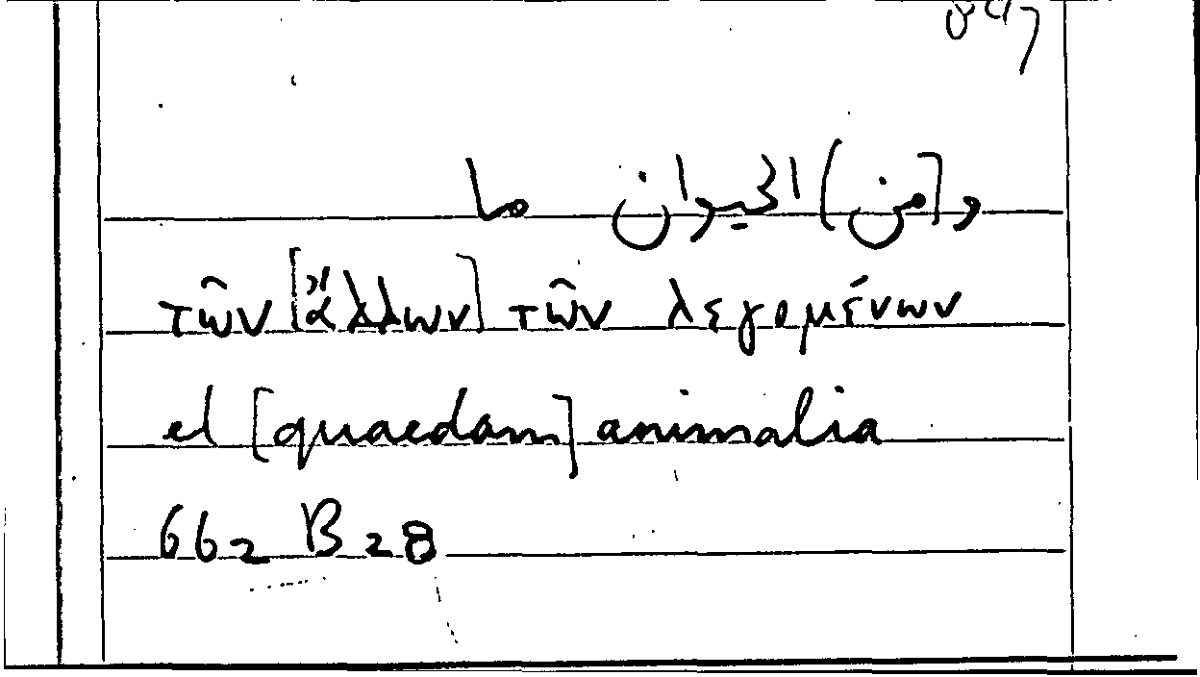 و[من) الحيوان ما
τῶν [ἄλλων] τῶν λεγομένων
el [quaedam] animalia
662 B 28